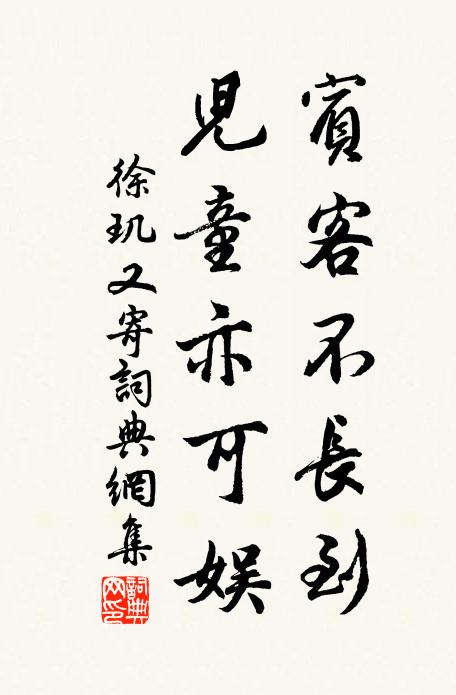 賓客不長到
兒童亦可娛
徐璣又寄詞典網集
詞典网印